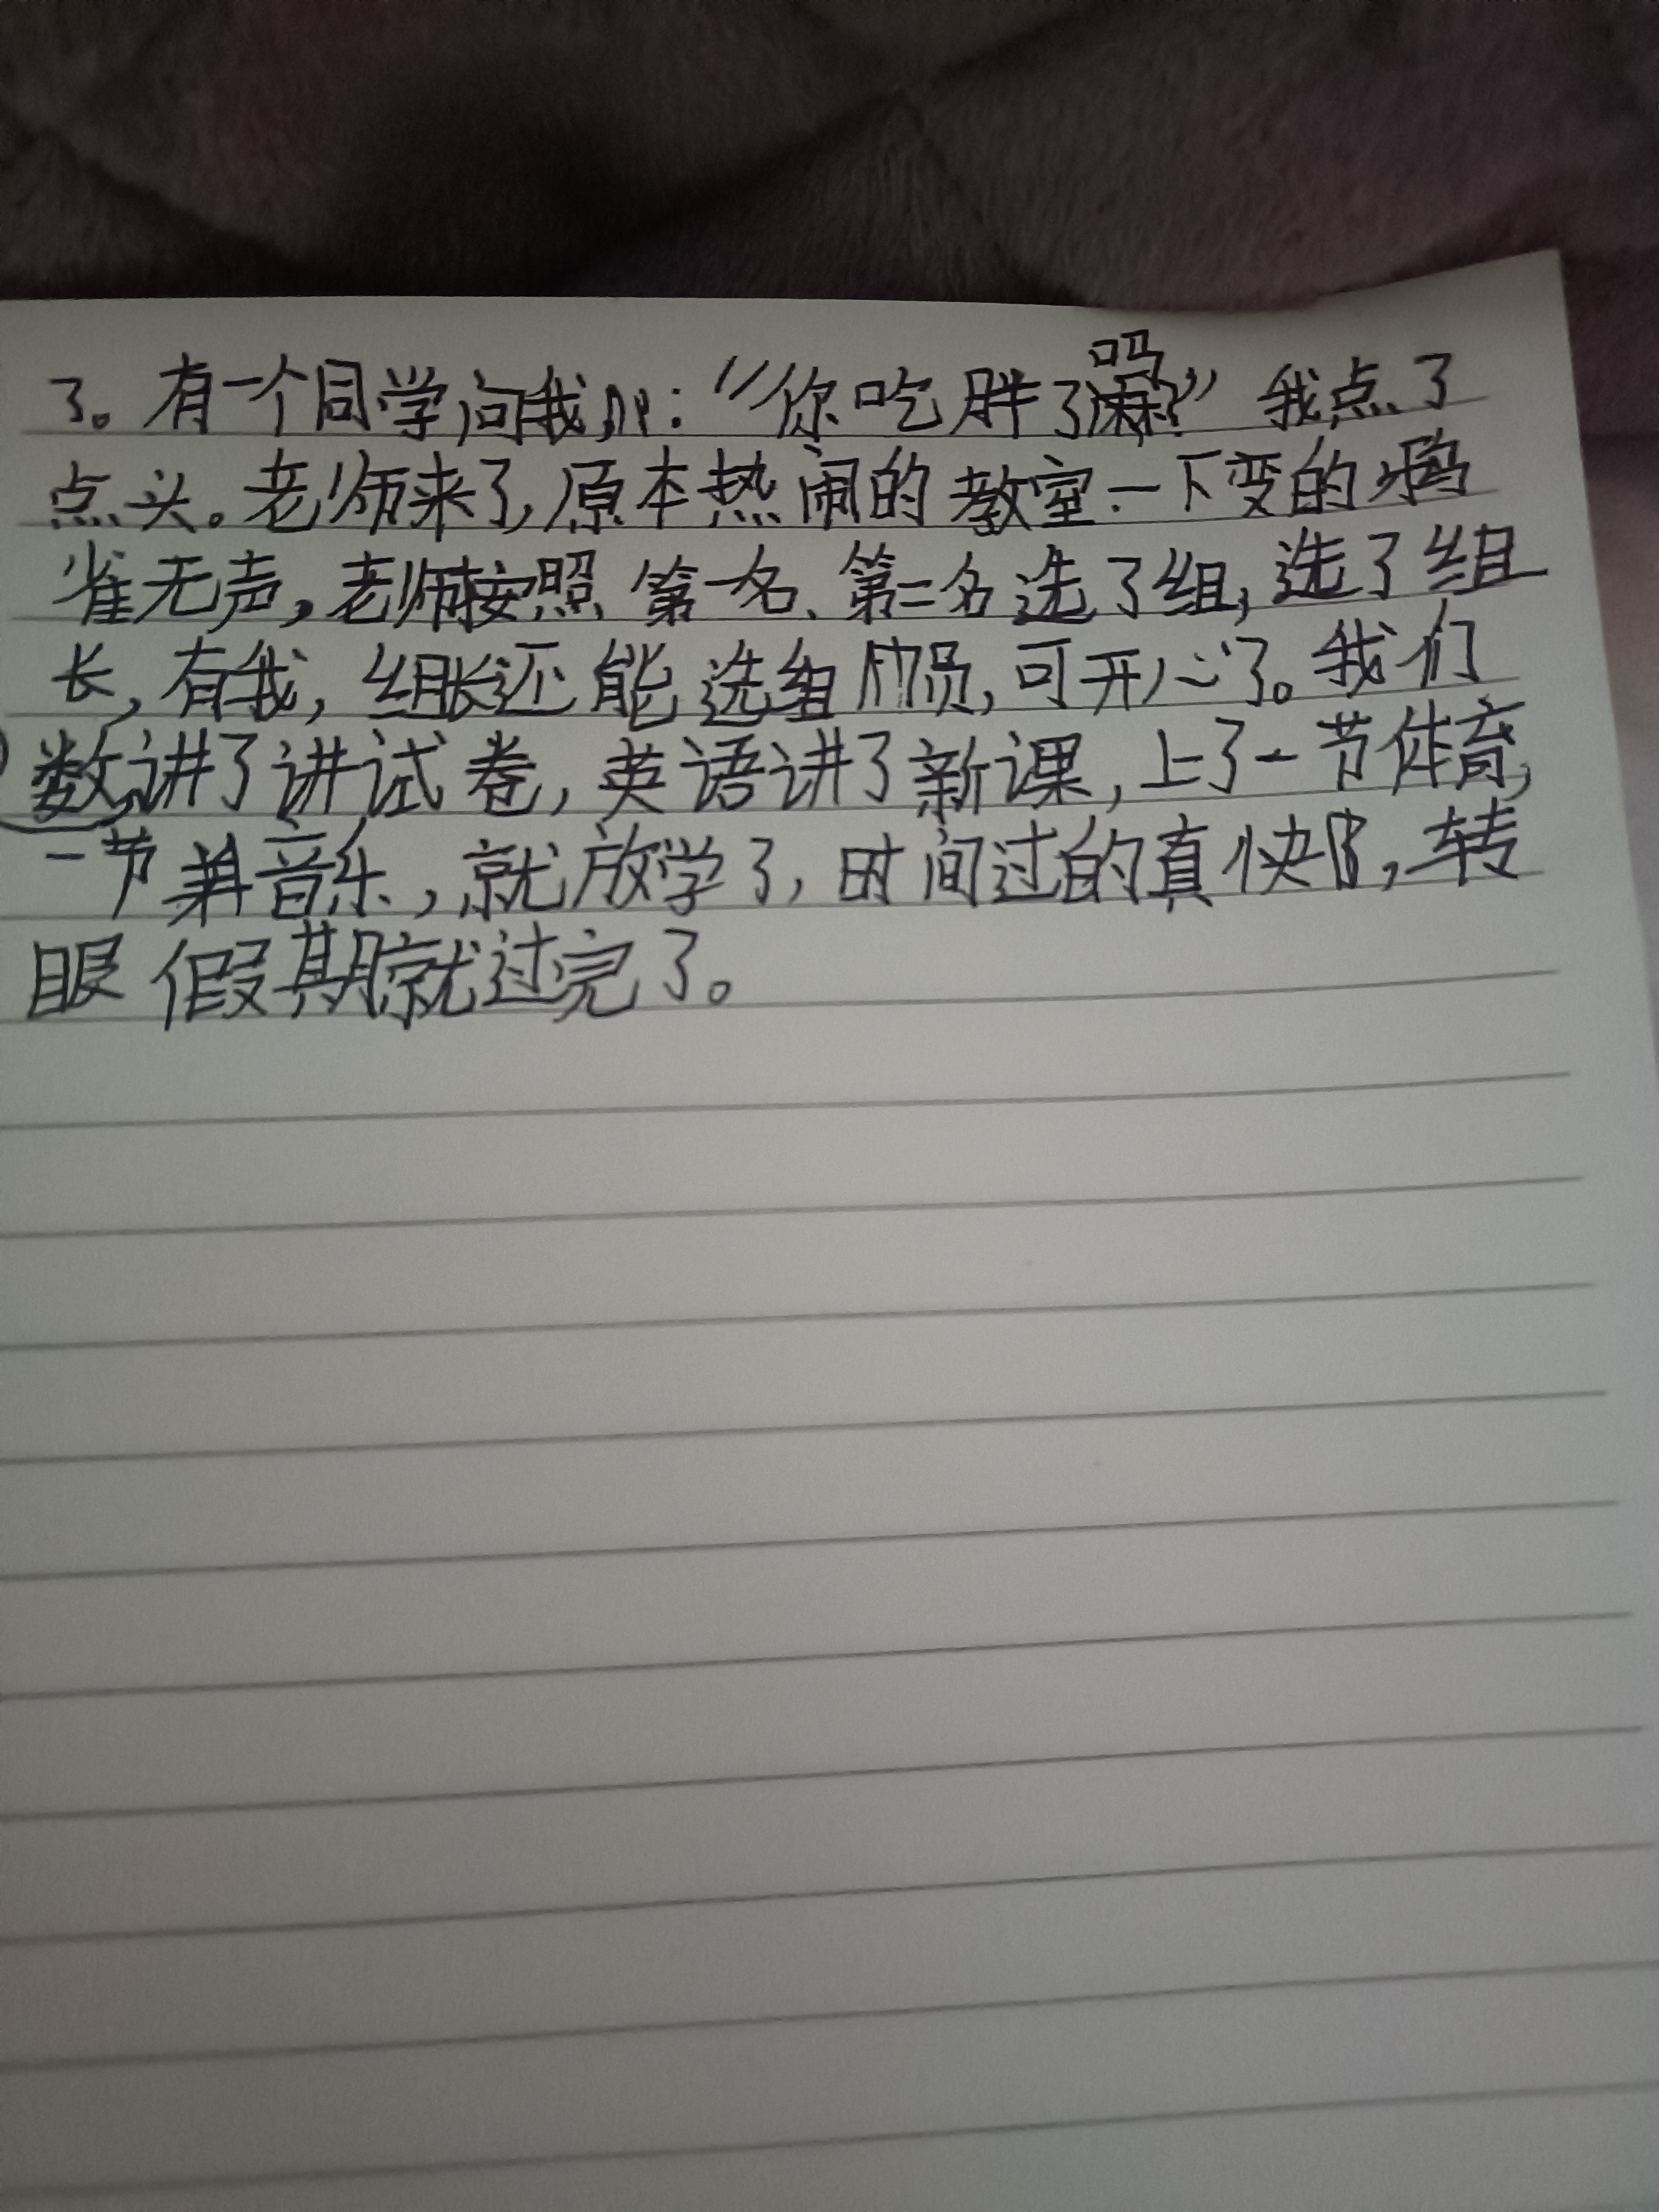 了。有一个同学问我:“你吃胖了吗?”我点了
点头。老师来了,原本热闹的教室一下变的鸦
雀无声,老师按照第一名、第二名选了组,选了组
长,有我,组长还能选组员,可开心了。我们
数讲了讲试卷,英语讲了新课,上了一节体育,
一节音乐,就放学了,时间过的真快,转
眼假期就过完了。